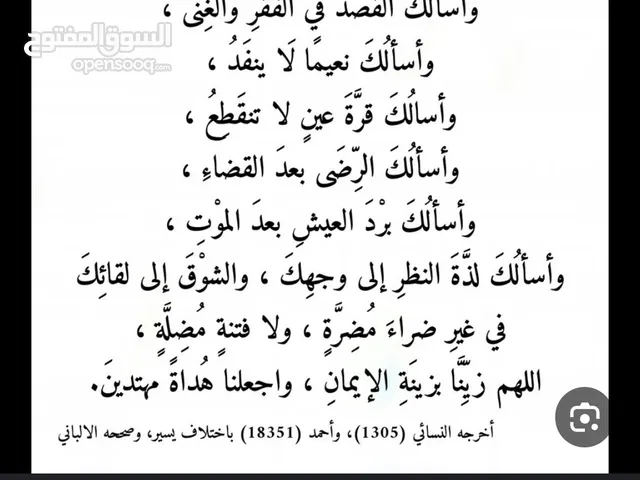 وأسألُكَ القصدَ في الفقرِ والغِنى ،
السوق المفتوح
opensooq.com
وأسألُكَ نعيمًا لَا ينفَدُ ،
وأسالُكَ قرَّةَ عينٍ لا تنقَطِعُ ،
وأسألُكَ الرِّضَى بعدَ القضاءِ ،
وأسألُكَ برْدَ العيشِ بعدَ الموْتِ ،
وأسألُكَ لذَّةَ النظرِ إلى وجهِكَ ، والشوْقَ إلى لقائِكَ
في غيرِ ضراءَ مُضِرَّةٍ ، ولا فتنةٍ مُضِلَّةٍ ،
اللهم زيِّنَّا بزينَةِ الإيمانِ ، واجعلنا هُداةً مهتدينَ.
أخرجه النسائي (1305)، وأحمد (18351) باختلاف يسير، وصححه الالباني